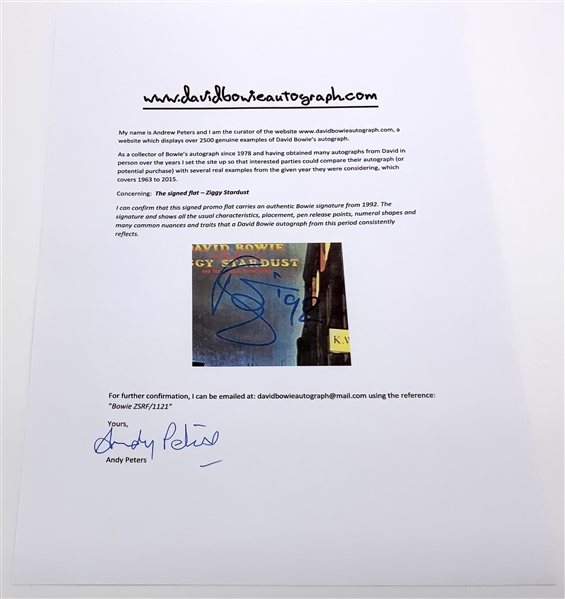 www.davidbowieautograph.com
My name is Andrew Peters and I am the curator of the website www.davidbowieautograph.com, a
website which displays over 2500 genuine examples of David Bowie's autograph.
As a collector of Bowie's autograph since 1978 and having obtained many autographs from David in
person over the years I set the site up so that interested parties could compare their autograph (or
potential purchase) with several real examples from the given year they were considering, which
covers 1963 to 2015.
Concerning: The signed flat – Ziggy Stardust
I can confirm that this signed promo flat carries an authentic Bowie signature from 1992. The
signature and shows all the usual characteristics, placement, pen release points, numeral shapes and
many common nuances and traits that a David Bowie autograph from this period consistently
reflects.
DAVID BOWIE
GGY STARDUST
'92
K.V
For further confirmation, I can be emailed at: davidbowieautograph@mail.com using the reference:
"Bowie ZSRF/1121"
Yours,
Andy Peters
Andy Peters